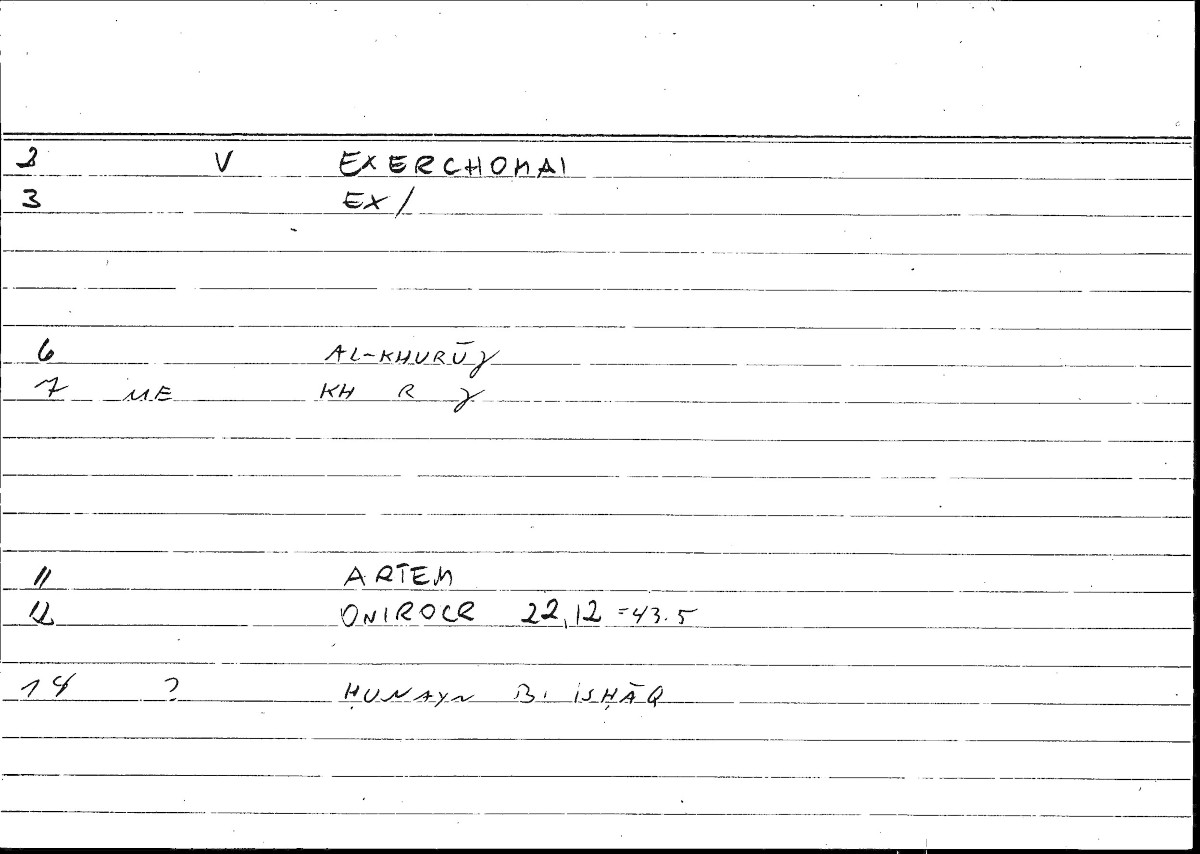 2 V EXERCHOMAI
3 EX/
6 AL-KHURŪJ
7 ME KH R J
11 ARTEM
12 ONIROCR 22,12 =43.5
14 ? ḤUNAYN B. ISḤĀQ